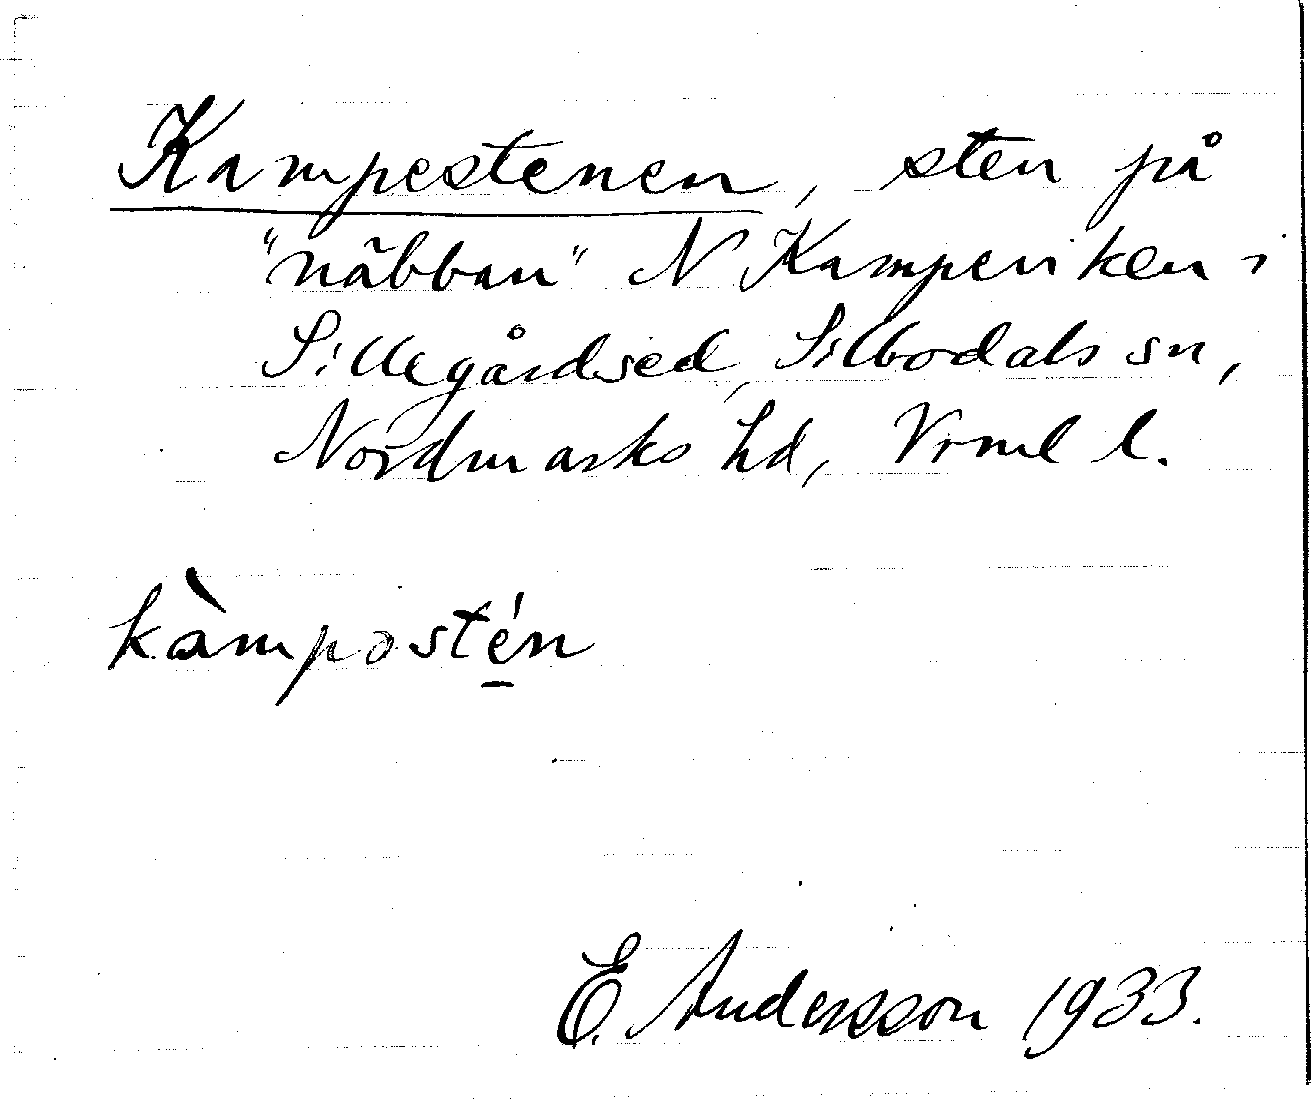 Kampestenen, sten på
"näbban" N Kamperiken i
Sillegårdsed, Silbodals sn,
Nordmarks hd, Vrml l.
kàmpəstén
E. Andersson 1933.